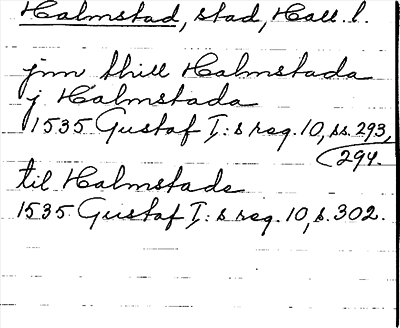 Halmstad, stad, Hall. l.
jnn thill Halmstada
j Halmstada
1535 Gustaf I:s reg. 10, ss. 293,
294.
til Halmstads
1535 Gustaf I:s reg. 10, s. 302.